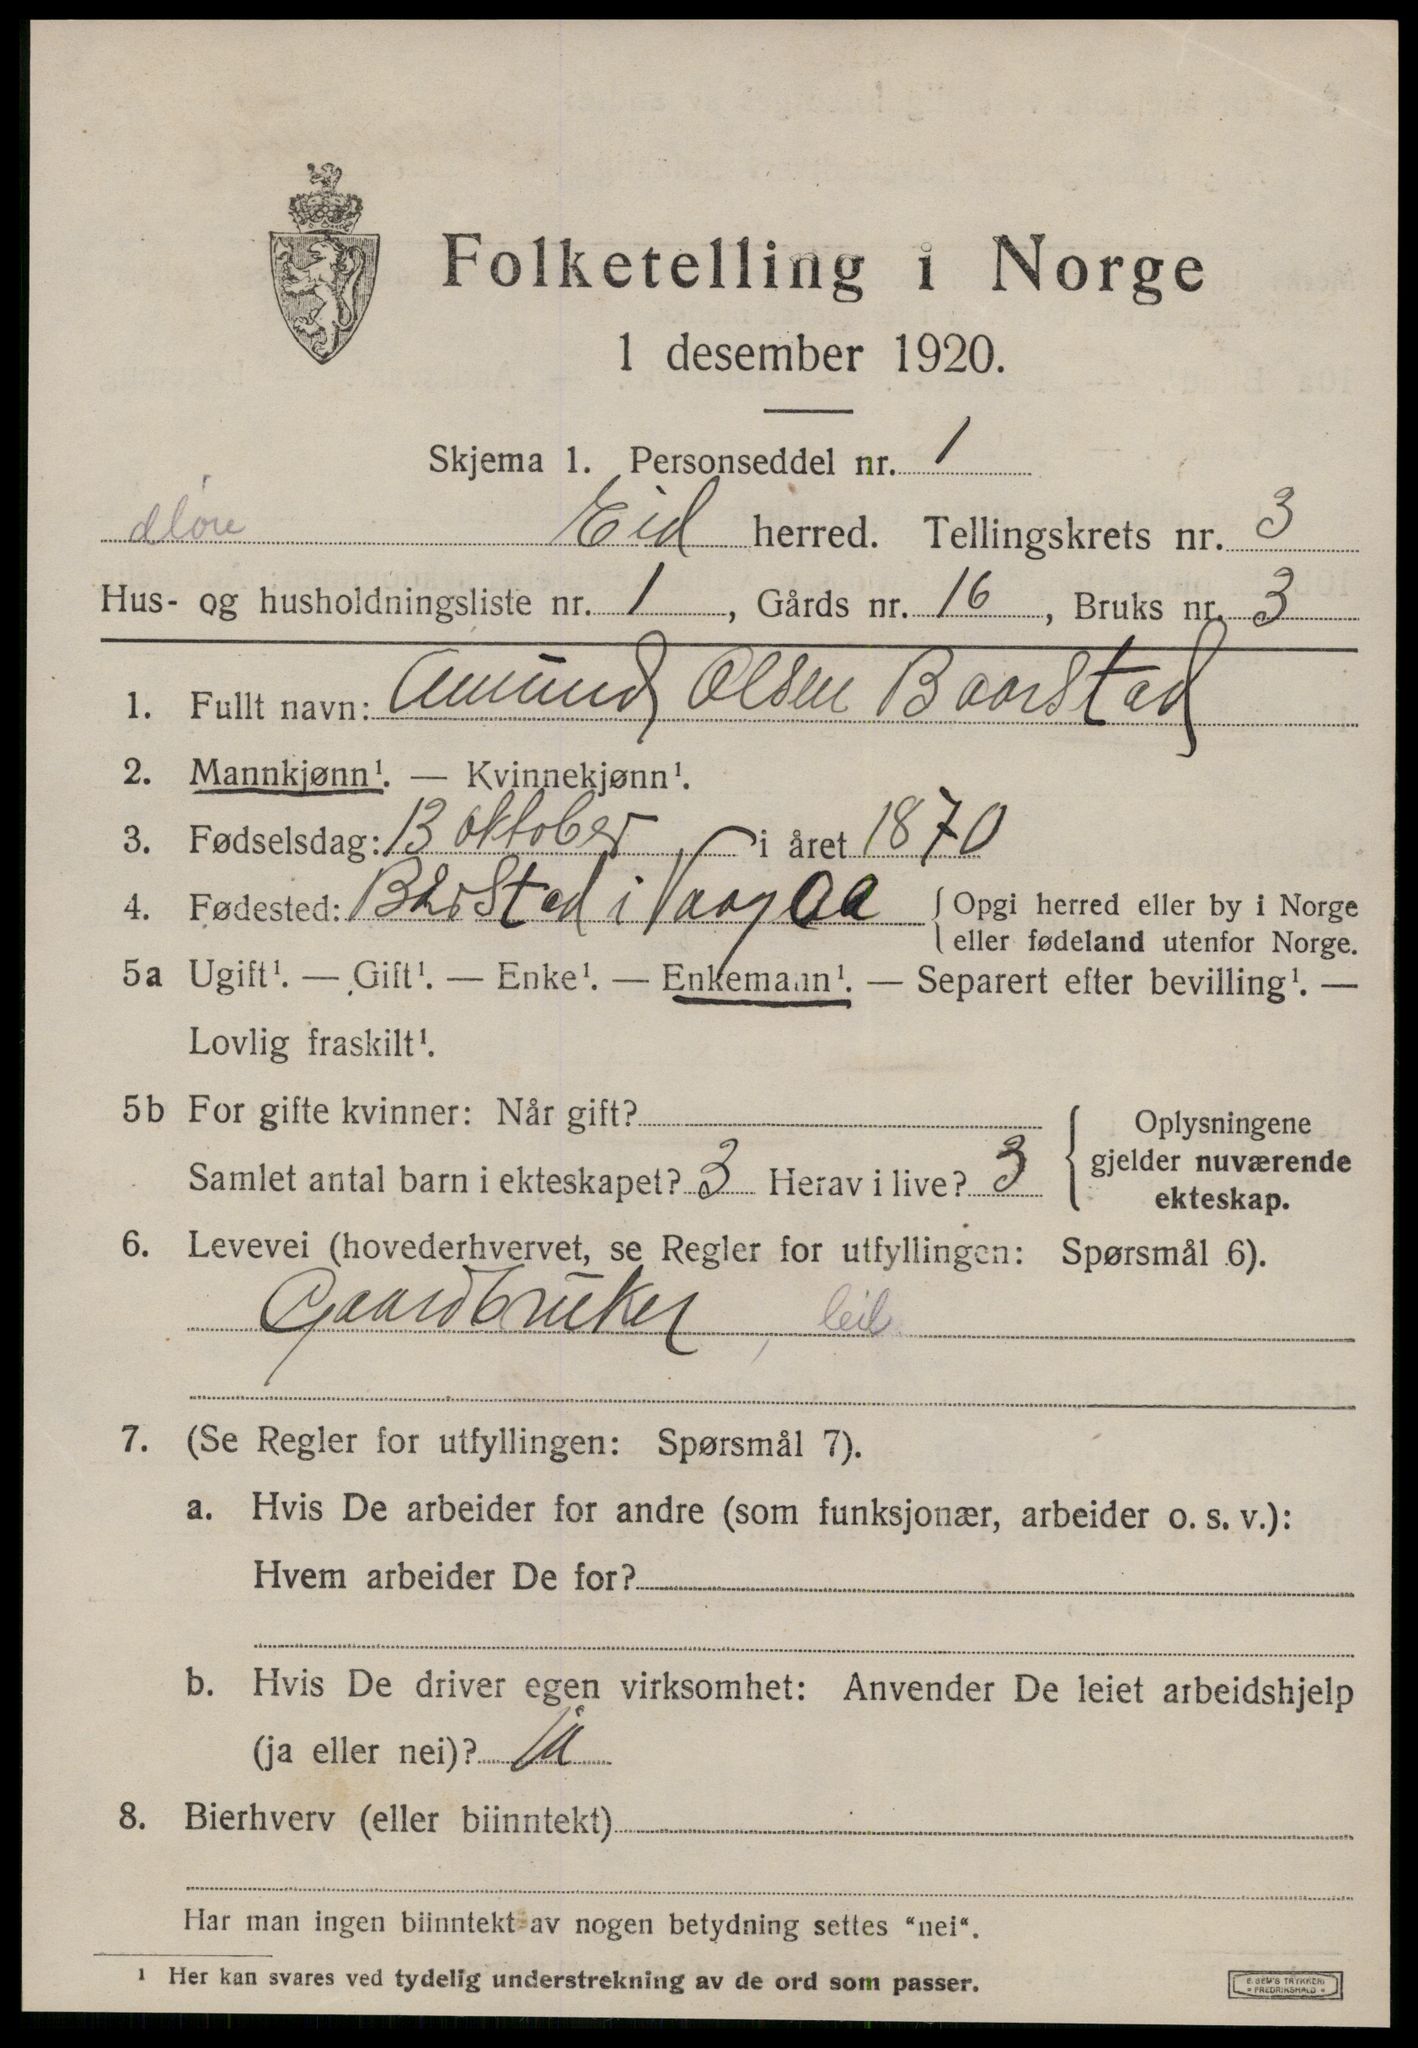 Folketelling i Norge
1 desember 1920.
Skjema 1. Personseddel nr. 1
Møre Eid herred. Tellingskrets nr. 3
Hus- og husholdningsliste nr. 1, Gårds nr. 16, Bruks nr. 3
1. Fullt navn: Amund Olsen Baarstad
2. Mannkjønn¹. — Kvinnekjønn¹.
3. Fødselsdag: 13 oktober i året 1870
4. Fødested: i Vaagaa { Opgi herred eller by i Norge
eller fødeland utenfor Norge.
5a Ugift¹. — Gift¹. — Enke¹. — Enkemann¹. — Separert efter bevilling¹. —
Lovlig fraskilt¹.
5b For gifte kvinner: Når gift?
Samlet antal barn i ekteskapet? 3 Herav i live? 3
Oplysningene
gjelder nuværende
ekteskap.
6. Levevei (hovederhvervet, se Regler for utfyllingen: Spørsmål 6).
Gaardbruker, leil.
7. (Se Regler for utfyllingen: Spørsmål 7).
a. Hvis De arbeider for andre (som funksjonær, arbeider o. s. v.):
Hvem arbeider De for?
b. Hvis De driver egen virksomhet: Anvender De leiet arbeidshjelp
(ja eller nei)? Ja
8. Bierhverv (eller biinntekt)
Har man ingen biinntekt av nogen betydning settes "nei".
¹ Her kan svares ved tydelig understrekning av de ord som passer.
E. SEM'S TRYKKERI
• FREDRIKSHALD •